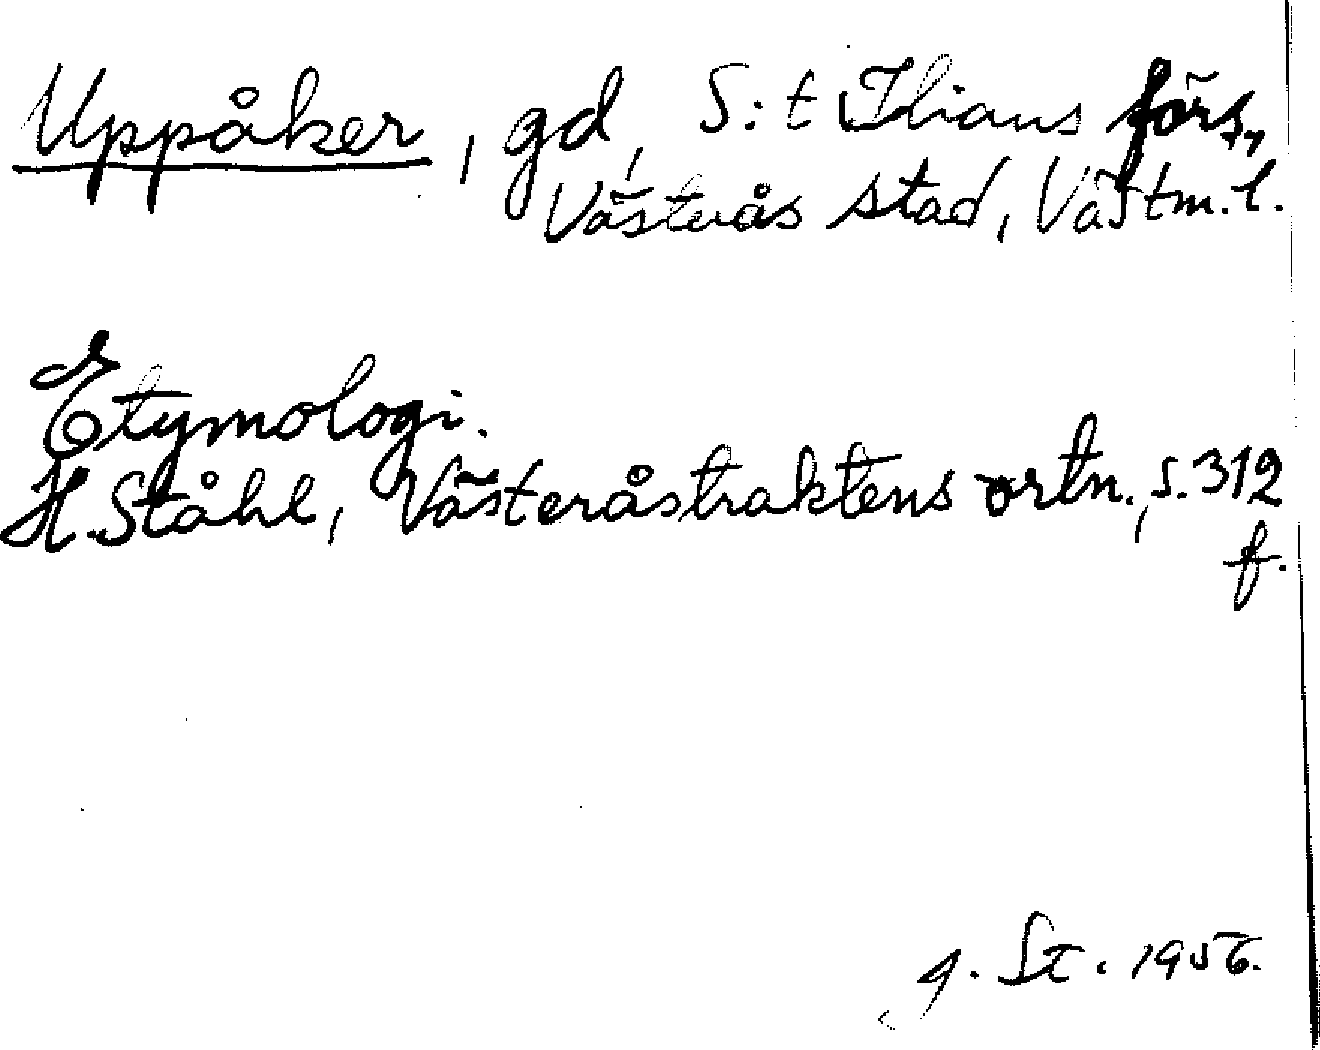 Uppåker, gd, S:t Ilians förs.,
Västerås stad, Västm. l.
Etymologi.
H. Ståhl, Västeråstraktens ortn., s. 312
f.
St. 1956.